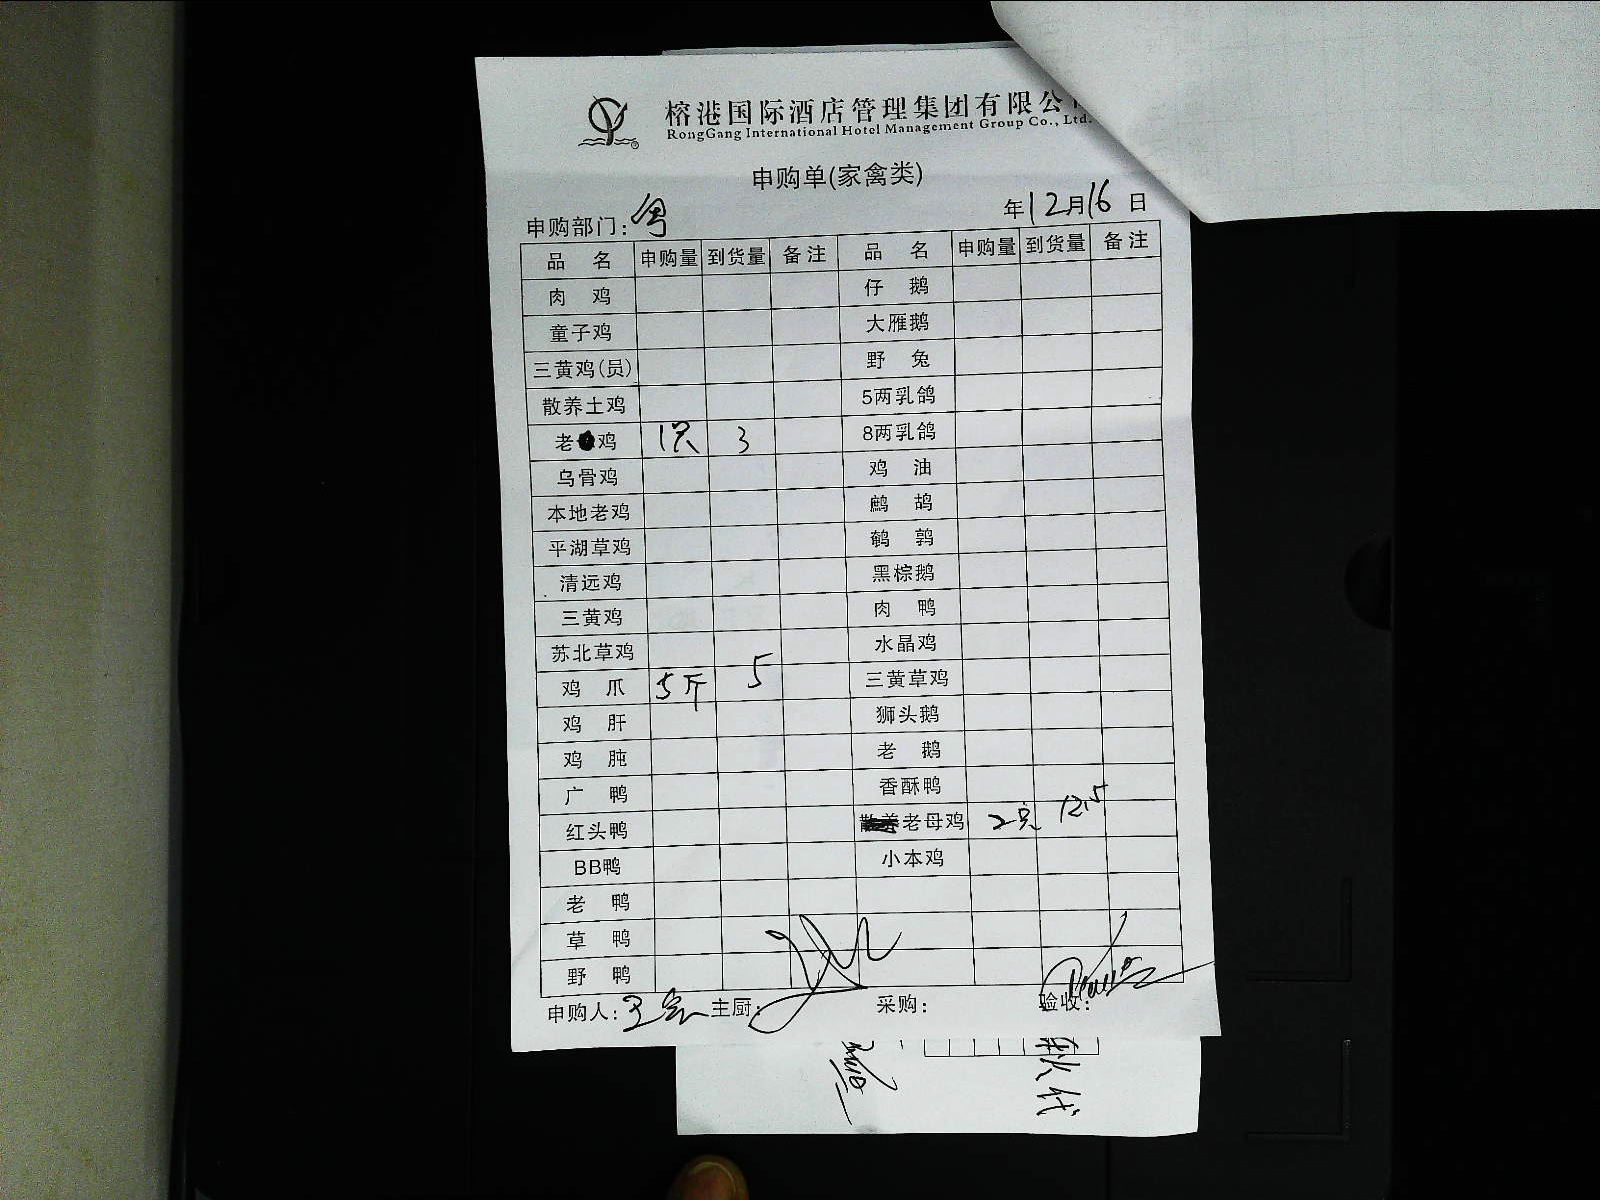 榕港国际酒店管理集团有限公
RongGang International Hotel Management Group Co., Ltd.
申购单(家禽类)
申购部门: 粤 年12月16日
品名 申购量 到货量 备注 品名 申购量 到货量 备注
肉鸡 仔鹅
童子鸡 大雁鹅
三黄鸡(员) 野兔
散养土鸡 5两乳鸽
老鸡 1只 3 8两乳鸽
乌骨鸡 鸡油
本地老鸡 鹧鸪
平湖草鸡 鹌鹑
清远鸡 黑棕鹅
三黄鸡 肉鸭
苏北草鸡 水晶鸡
鸡爪 5斤 5 三黄草鸡
鸡肝 狮头鹅
鸡肫 老鹅
广鸭 香酥鸭
红头鸭 老母鸡 2只 12.5
BB鸭 小本鸡
老鸭
草鸭
野鸭
申购人: 主厨: 采购: 验收: